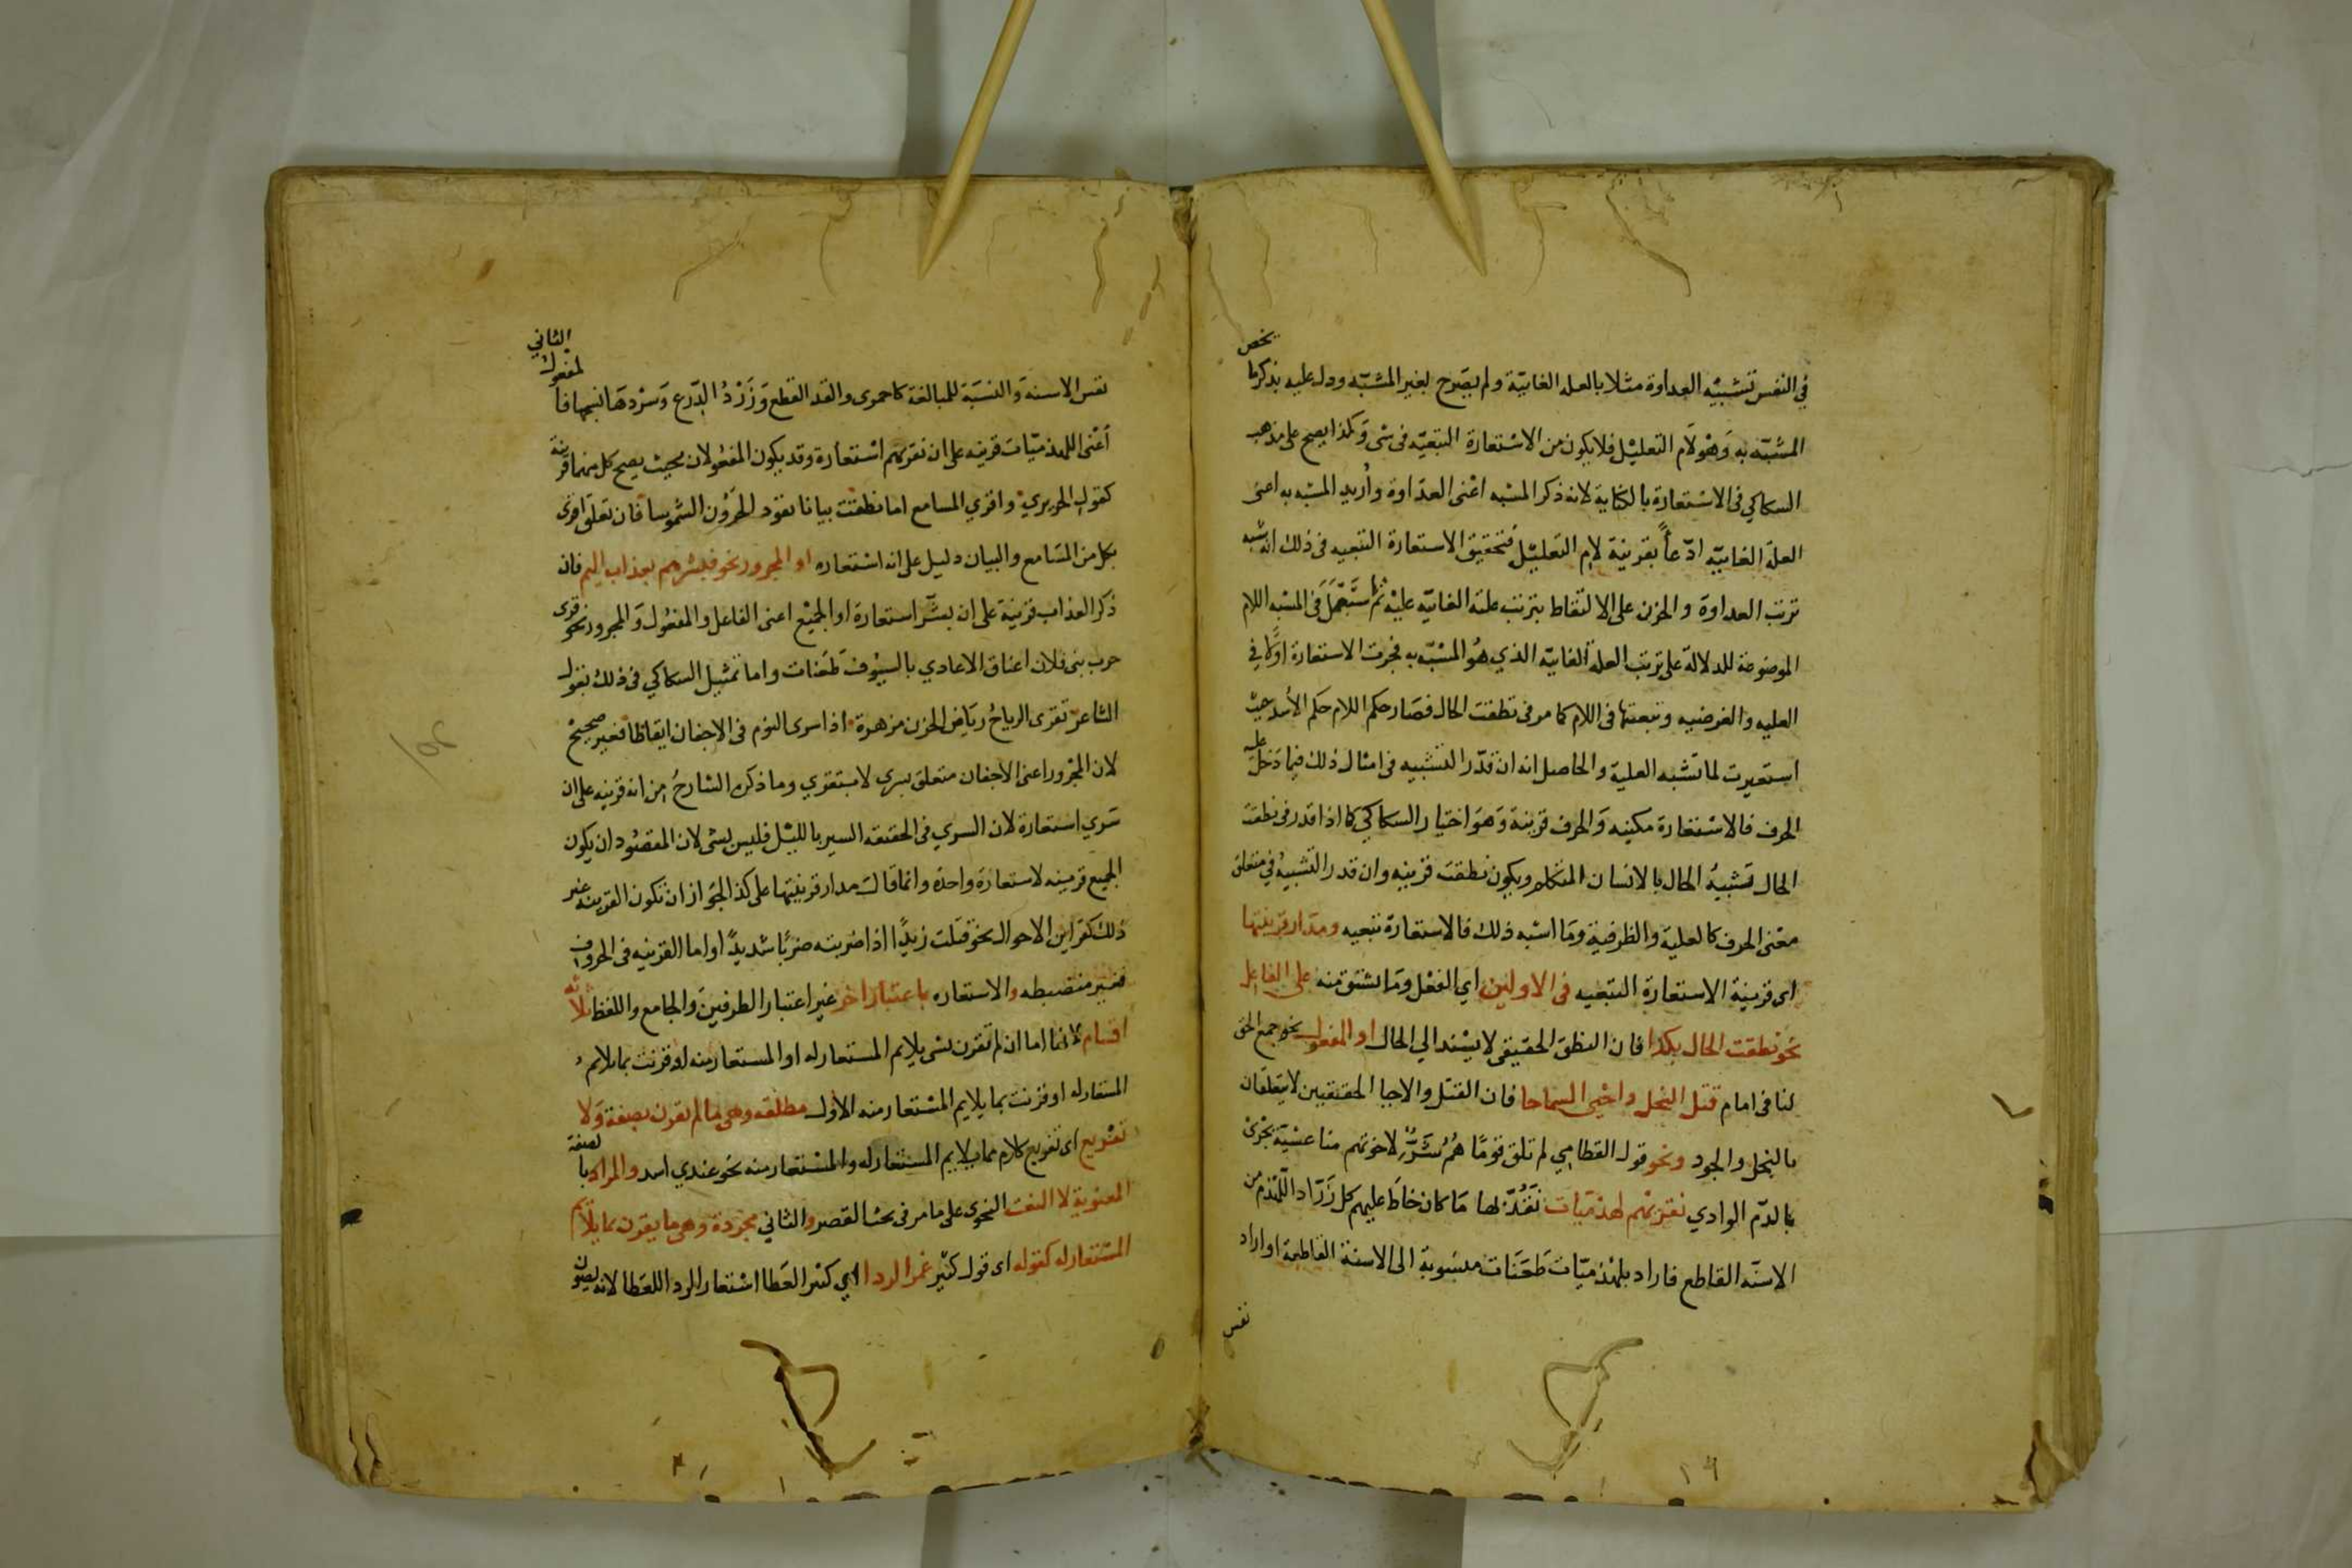 في النفس تشبيه العداوة مثلا بالعله الغائيّة ولم يصرح لغير المشبّه ودل عليه بذكر ما يخص
المشبّه به وَهُوَ لَام التعليل فلا يكون من الاستعارة التبعيّه فى شى وَكذا يصح على مذهب
السكاكي فى الاستعارة بالكناية لانه ذكر المشبه اعْنى العدَاوة وأُريد المشبه به اعنى
العلة الغائيّه ادّعاًء بقرينة لام التعليل فتحقيق الاستعارة التبعيه فى ذلك انه شبه
ترتب العداوة والحزن على الالتقاط بترتب علته الغائيّه عليْه ثم استَعْمَلَ فى المشبه اللام
الموضوعة للدلالة على ترتب العلة الغائيّه الذي هُو المشبّه به فجرت الاستعارة اولًا في
العليه والغرضيه وتبعتها فى اللام كما مر فى نطقت الحال فصَار حكم اللام حكم الأسد حيث
استعيرت لما تشبه العلية والحاصل انه ان قدّر التشبيه فى امثال ذلك فيما دَخل عليه
الحرف فالاسْتعَارة مكنيه وَالحرف قرينة وَهوَ اختيار السكاكي كما اذا قدر فى نطقت
الحال تشبيهُ الحال بالانسان المتكلم ويكون نطقت قرينه وان قدر التشبيهُ في متعلق
معْنى الحرف كالعلية والظرفية ومَا اشبه ذلك فالاستعارَة تبعيه ومدار قرينتها
اى قرينة الاستعارَة التبعيه فى الاولين اي الفعْل ومَا يشتق منه على الفاعل
نحو نطقت الحال بكذا فان النطق الحقيقى لا يسْند الي الحال او المفعول نحو جمع الحق
لنا فى امام قتل البخل واحْيى السماحا فان القتل والاحيا الحقيقيين لا يتعلقان
بالبخل والجود ونحو قول القطامي لم تلق قومًا هُمُ شَرٌّ لاخوتهم منا عشيّة يجْرىْ
بالدّم الوادي نقريهُم لهذميَات نَقُدّ بها مَا كان خاطَ عليهم كل زَرّاد اللَّهذم من
الاسنّه القاطع فاراد بلهْذميّات طَعَنات منسُوبة الى الاسنة القاطعة او اراد
نفس
نفس الاسنة وَالنسَبة للمبالغة كاحمرى والقد القطع وَزَرْدُ الدّرع وَسَرْدهَا نسجها فالمفعول الثاني
أعْنى اللهذميّات قرينه على ان نقريهم اسْتعاَرة وقد يكون المفعُولان بحيث يصح كل منهما قرينة
كقول الحريري واقري المسامع اما نطقت بيانا يقود الحَرُوْن الشموسا فان تعلق اقرى
بكل من المسَامع والبيان دليل على انه استعاره او المجرور نحو فبشرهم بعذاب اليم فان
ذكر العذاب قرينة على ان بشّر استعارة او الجميع اعنى الفاعل والمفعُول وَالمجرور نحو قرى
حرب بنى فلان اعناق الاعادي بالسيُوف طعَنات واما تمثيل السكاكي فى ذلك بقول
الشاعر تقرى الرياحُ ريَاض الحزن مزهرة اذا سرى النوم فى الاجفان ايقاظا فغير صحيح
لان المجرور اعنى الاجفان متعلق بسرى لا بتقري وما ذكره الشارحُ من انه قرينه على ان
سَري استعارة لان السري فى الحقيقه السير بالليل فليس بشى لان المقصُود ان يكون
الجميع قرينه لاستعارة واحدة وانما قال مدار قرينتها على كذا لجوَاز ان تكون القرينه غير
ذلك كقراين الاحوال نحو قتلت زيدًا اذا ضربته ضربًا شديدًا واما القرينه فى الحروف
فغير منضبطه والاستعاره باعتبار اخر غير اعتبار الطرفين والجامع واللفظ ثلاثه
اقسام لانها اما ان لم تقرن بشى يلايم المستعار له او المستعار منه او قرنت بما يلايم
المستعار له او قرنت بما يلايم المستعار منه الاول مطلقه وهى ما لم تقرن بصفة وَلا
تفريع اى تفريع كلام مما يلايم المستعار له والمستعار منه نحو عندي اسد والمراد بالصفة
المعنوية لا النعت النحوى على ما مر فى بحث القصر والثاني مجردة وهى ما يقرن بما يلايم
المستعار له كقوله اى قول كثير غمر الردا اي كثير العَطا اسْتعار الردا للعَطا لانه يصون